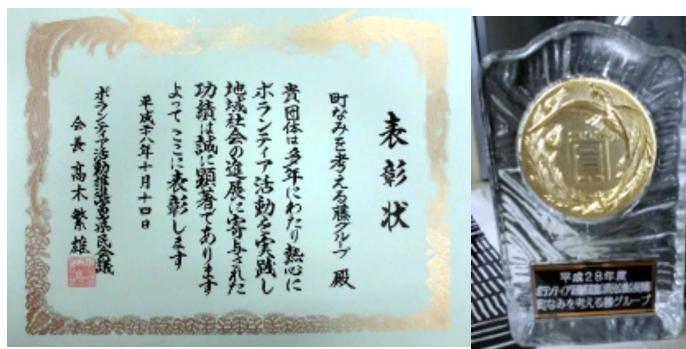 表彰状
町なみを考える藤グループ 殿
貴団体は多年にわたり熱心に
ボランティア活動を実践し
地域社会の進展に寄与された
功績は誠に顕著であります
よってここに表彰します
平成廿八年十月十四日
ボランティア活動推進富山県民会議
会長 高木繁雄
平成28年度
ボランティア
町なみを考える藤グループ